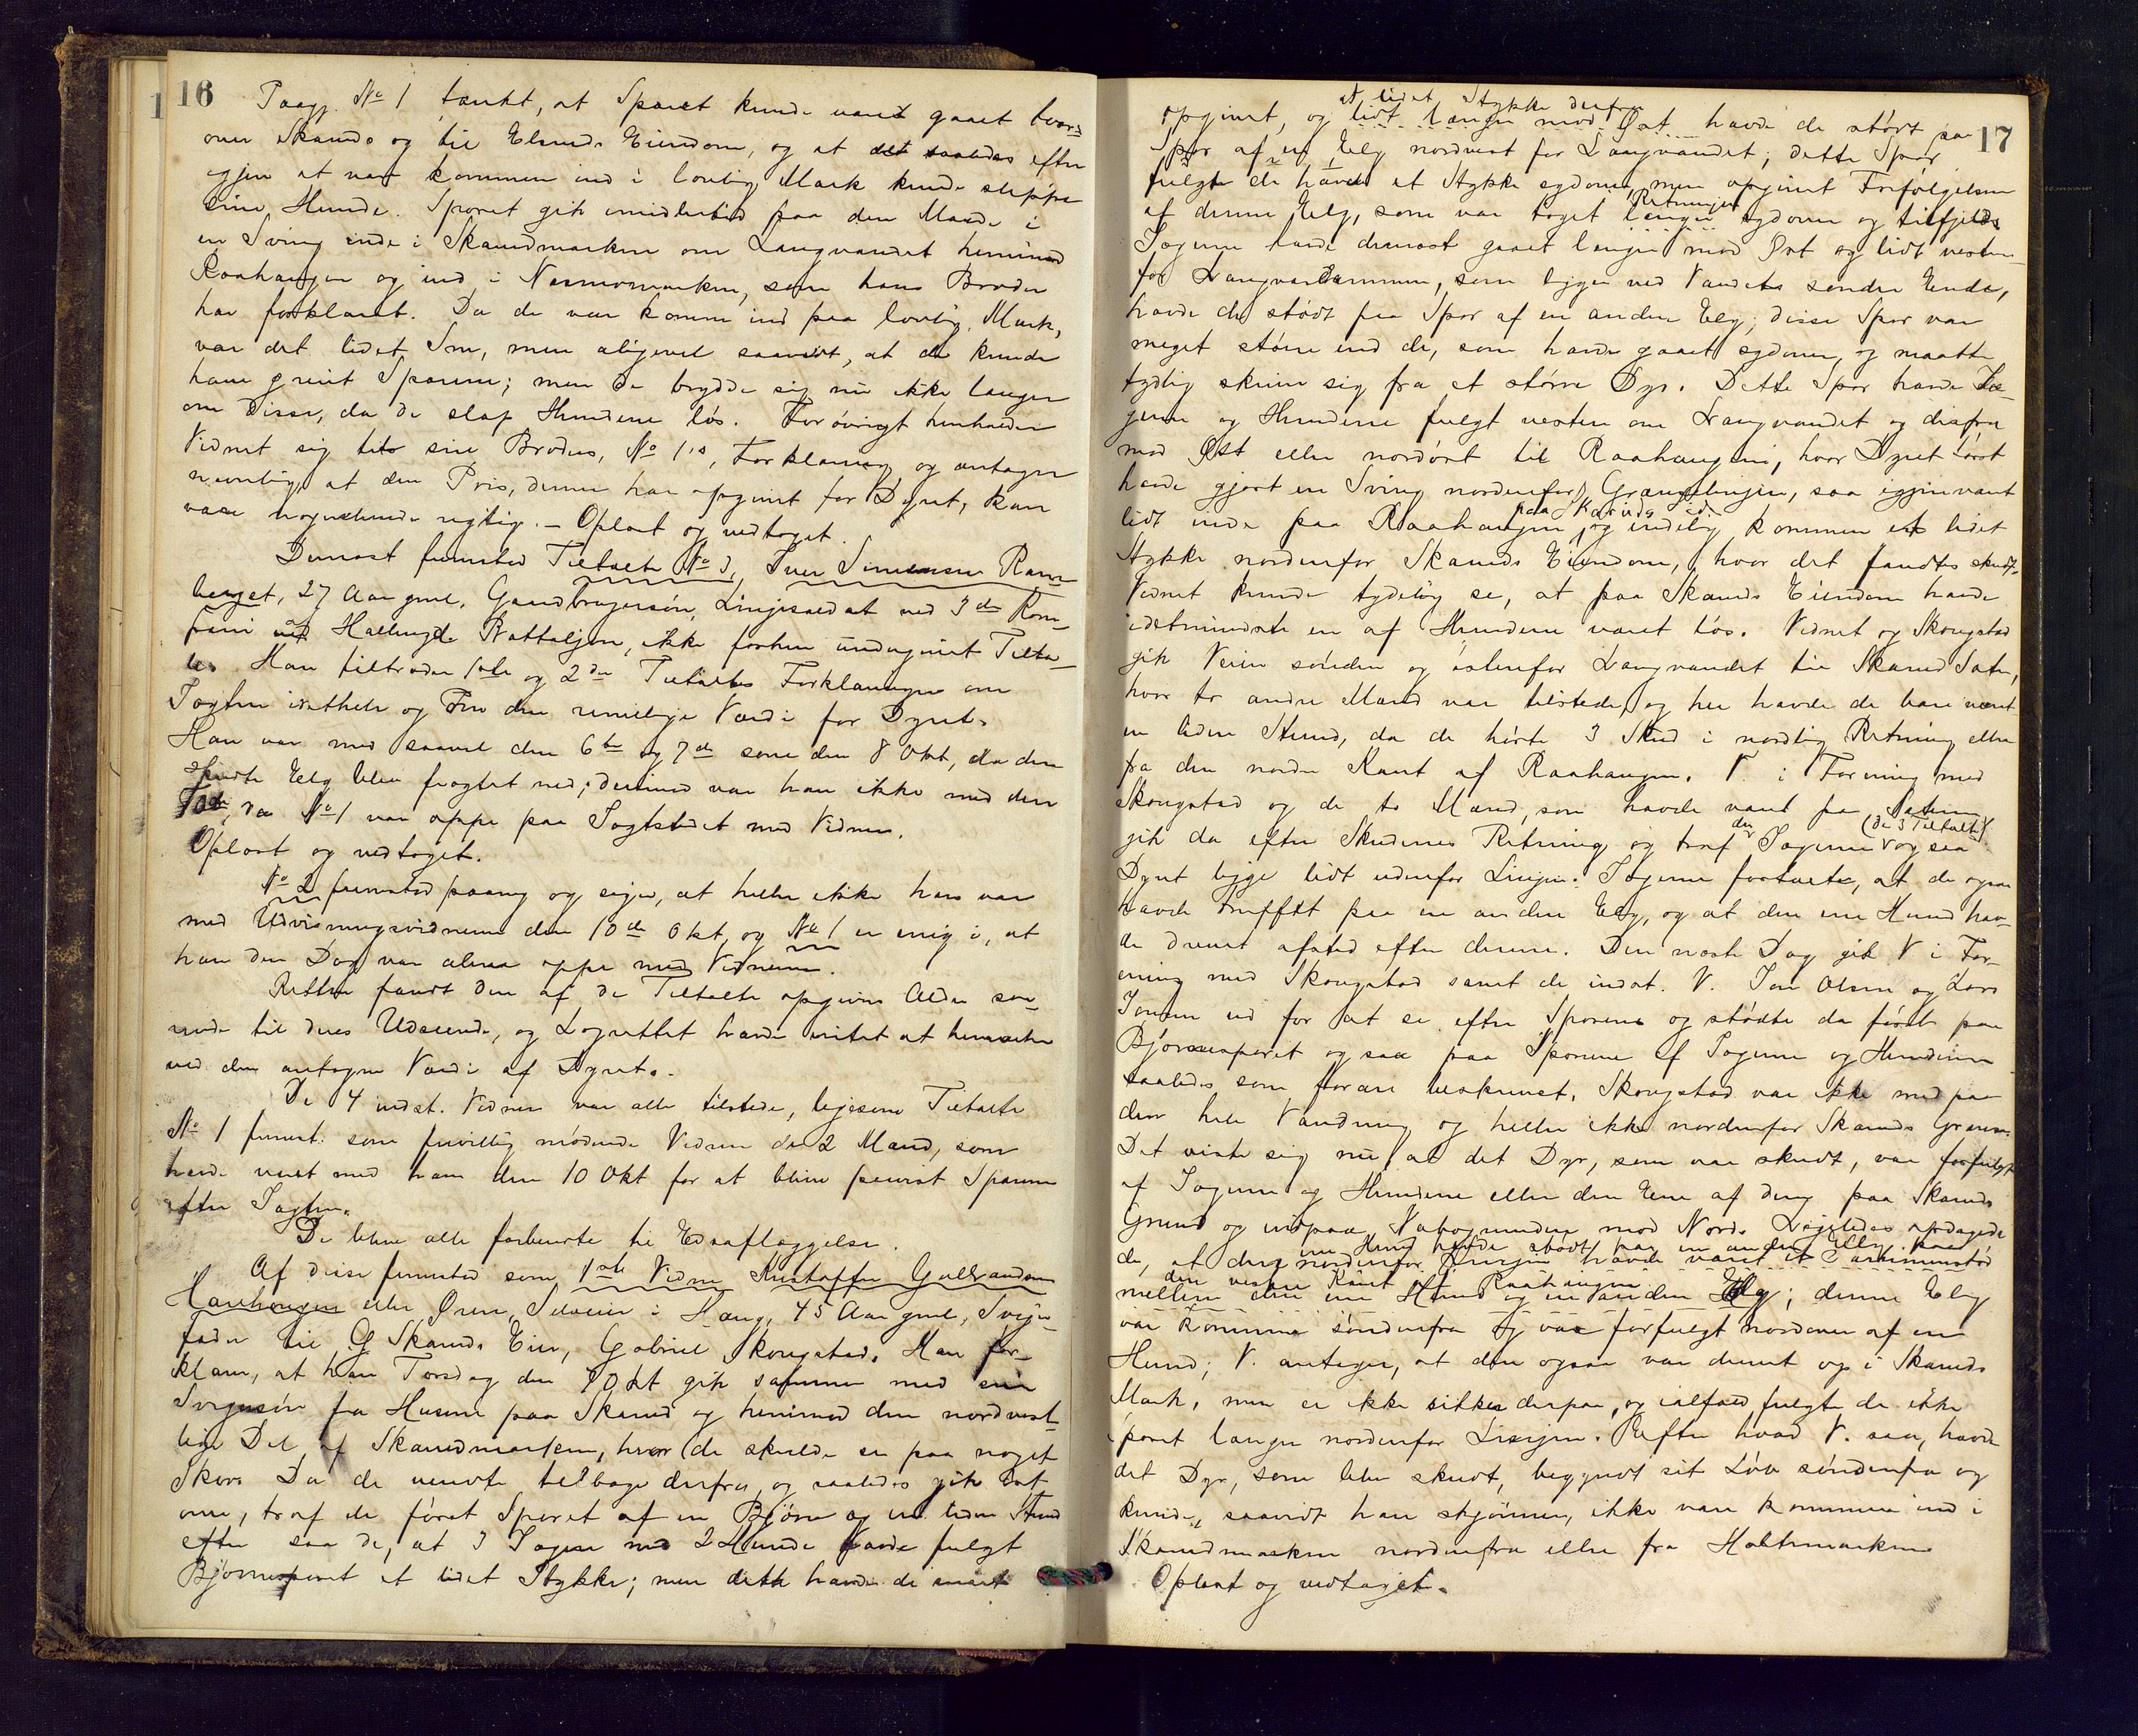 16
Paagj. No 1 tænkt, at Sporet kunde været gaaet tvers
over Skaruds og til Elsruds Eiendom, og at det saaledes efter
igjen at var kommen ind i lovlig Mark kunde slippe
sine Hunde. Sporet gik imidlertid paa den Maade i
en Sving inde i Skarudmarken om Langvandet henimod
Raahaugen og ind i Nermomarken, som hans Broder
har forklaret. Da de var komne ind paa lovlig Mark,
var det lidet Sne, men aligevel saavidt, at de kunde
have greiet Sporene; men de brydde sig nu ikke længer
om disse, da de slap Hundene løs. Forøvrigt henholder
Vidnet sig til sin Broders, No 1's, Forklaring og antager
nemlig at den Pris, denne har opgivet for Dyret, kan
være nogenlunde rigtig. – Oplæst og vedtaget.
Dernæst fremstod Tiltalte No 3, Iver Simensen Ram-
berget, 27 Aar gml. Gaardbrugersøn, Linjesoldat ved 3die Kom-
pani ved Hallingd. Battaljon, ikke forhen undergivet Tilta-
le. Han tiltræder 1ste og 2den Tiltaltes Forklaringer om
Jagten i det hele og om den rimelige Værdi for Dyret.
Han var med saavel den 6te og 7de som den 8 Okt, da den
skudte Elg blev fragtet ned; derimod var han ikke med den
10de, da No 1 var oppe paa Jagtstedet med Vidner.
Oplæst og vedtaget.
No 2 fremstod paany og siger, at heller ikke han var
med Udvisningsvidnerne den 10de Okt, og No 1 er enig i, at
han den Dag var alene oppe med Vidnerne.
Retten fandt den af de Tiltalte opgivne Alder sva-
rende til deres Udseende, og Lagrettet havde intet at bemærke
ved den antagne Værdi af Dyret.
De 4 indst. Vidner var alle tilstede, ligesom Tiltalte
No 1 fremst. som frivillig mødende Vidner de 2 Mænd, som
havde været med ham den 10 Okt for at blive paavist Sporene
efter Jagten.
De bleve alle forberedte til Edsaflæggelse.
Af disse fremstod som 1ste Vidne Kristoffer Gulbrandsen
Haukaugen eller Øren, Selveier i Haug, 45 Aar gml, Sviger-
fader til G Skaruds Eier, Gabriel Skougstad. Han for-
klarer, at han Torsdag den 7 Okt gik sammen med sin
Svigersøn fra Husene paa Skarud og henimod den nordvest-
lige Del af Skarudmarken, hvor de skulde se paa noget
Skov. Da de vendte tilbage derfra, og saaledes gik øst
over, traf de først Sporet af en Bjørn og en liden Stund
efter saa de, at 3 Jægere med 2 Hunde havde fulgt
Bjørnesporet et lidet Stykke; men dette havde de snart
17
et lidet Stykke derfra
opgivet, og lidt længer mod Øst havde de stødt paa
Spor af en Elg nordvest for Langvandet; dette Spor
fulgte de havde et Stykke sydover, men opgivet Forfølgelsen
Retningen
af denne Elg, som var taget længer sydover og tilfjelds
Jægerne havde dernæst gaaet længer mod Øst og lidt vesten-
for Langvanddammen, som ligger ved Vandets søndre Ende,
havde de stødt paa Spor af en anden Elg; disse Spor var
meget større end de, som havde gaaet sydover, og maatte
tydlig skrive sig fra et større Dyr. Dette Spor havde Jæ-
gerne og Hundene fulgt vesten om Langvandet og derfra
mod Øst eller nordøst til Raahaugen, hvor Dyret først
havde gjort en Sving nordenfor Grændselinjen, saa igjen været
paa Skaruds
lidt inde paa Raahaugen, og endelig kommen et lidet
Stykke nordenfor Skaruds Eiendom, hvor det fandtes skudt.
Vidnet kunde tydelig se, at paa Skaruds Eiendom havde
idetmindste en af Hundene været løs. Vidnet og Skougstad
gik Veien sønden og østenfor Langvandet til Skarud Sæter,
hvor to andre Mænd var tilstede, og her havde de bare været
en liden Stund, da de hørte 3 Skud i nordlig Retning eller
fra den nordre Kant af Raahaugen. V. i Forening med
Skougstad og de to Mænd, som havde været paa Sæteren,
der (de 3 Tiltalte)
gik da efter Skudenes Retning og traf Jægerne og saa
Dyret ligge lidt udenfor Linjen. Jægerne fortalte, at de ogsaa
havde truffet paa en anden Elg, og at den ene Hund hav-
de drevet afsted efter denne. Den næste Dag gik V i For-
ening med Skougstad samt de indst. V. Jon Olsen og Lars
Jonsen ud for at se efter Sporene og stødte da først paa
Bjørnesporet og saa paa Sporene af Jægerne og Hundene
saaledes som foran beskrevet. Skougstad var ikke med paa
den hele Vandring og heller ikke nordenfor Skaruds Grænse.
Det viste sig nu, at det Dyr, som var skudt, var forfulgt
af Jægerne og Hundene eller den Ene af dem paa Skaruds
Grund og indpaa Nabogrunden mod Nord. Ligeledes opdagede
en Hund havde stødt paa en anden Elg paa
de, at der nordenfor Linjen havde været et Sammenstød
den vestre Kant af Raahaugen
mellem den ene Hund og en anden Elg; denne Elg
var kommen søndenfra og var forfulgt nordover af en
Hund; V. antager, at den ogsaa var drevet op i Skaruds
Mark, men er ikke sikker derpaa, og ialfald fulgte de ikke
Sporet længer nordenfor Linjen. Efter hvad V. saa, havde
det Dyr, som blev skudt, begyndt sit Løb søndenfra og
kunde, saavidt han skjønner, ikke være kommen ind i
Skarudmarken nordenfra eller fra Holtemarken
Oplæst og vedtaget.